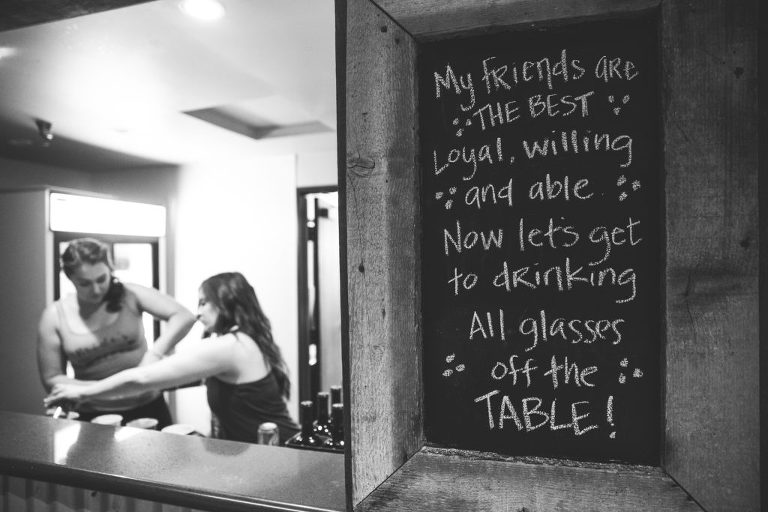 My friends are
THE BEST
Loyal, willing
and able
Now let's get
to drinking
All glasses
off the
TABLE!